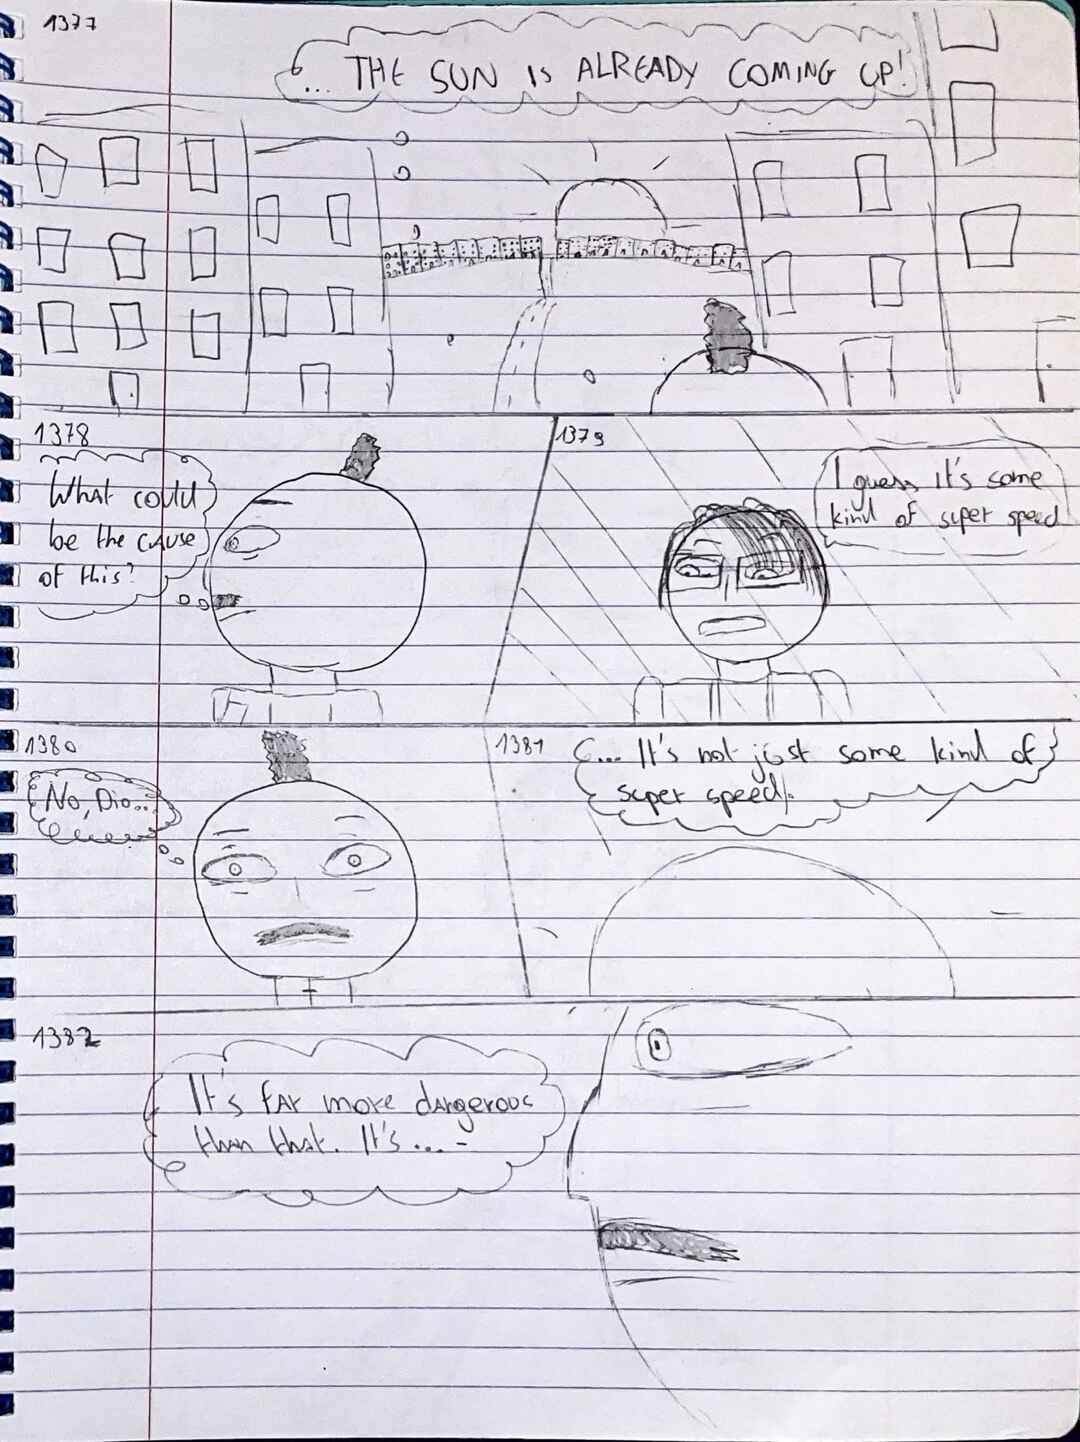 1377
... THE SUN IS ALREADY COMING UP!
1378
What could
be the cause
of this?
1379
I guess it's some
kind of super speed
1380
No, Dio...
1381
... It's not just some kind of
super speed.
1382
It's far more dangerous
than that. It's...-